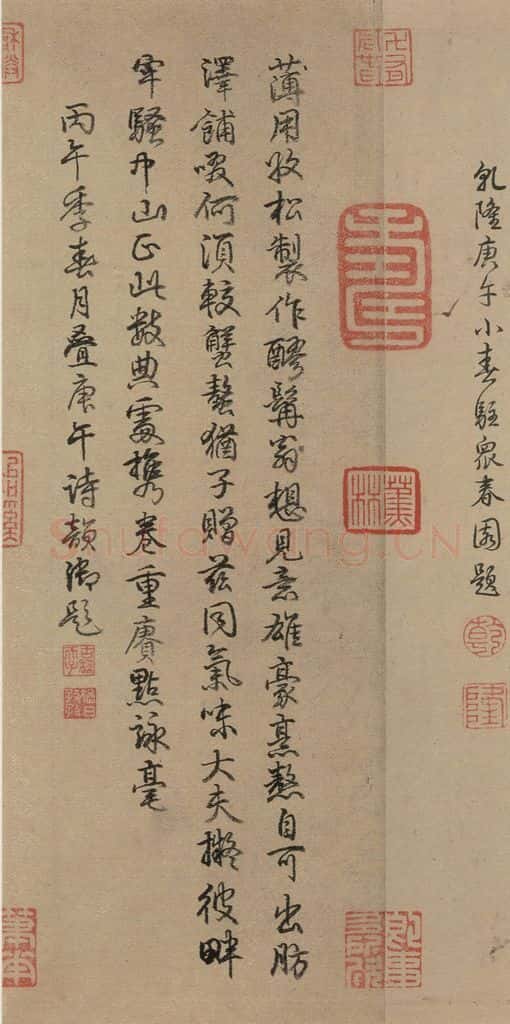 乾隆庚午小春駐眾春園題
乾
隆
薄用收松製作醪髯翁想見意雄豪烹熬自可出肪
澤餔啜何須較蟹螯猶子贈茲同氣味大夫擬彼畔
牢騷中山正此數典處携卷重賡點詠毫
丙午季春月疊庚午詩韻御題
蕉林
Shufawang.CN